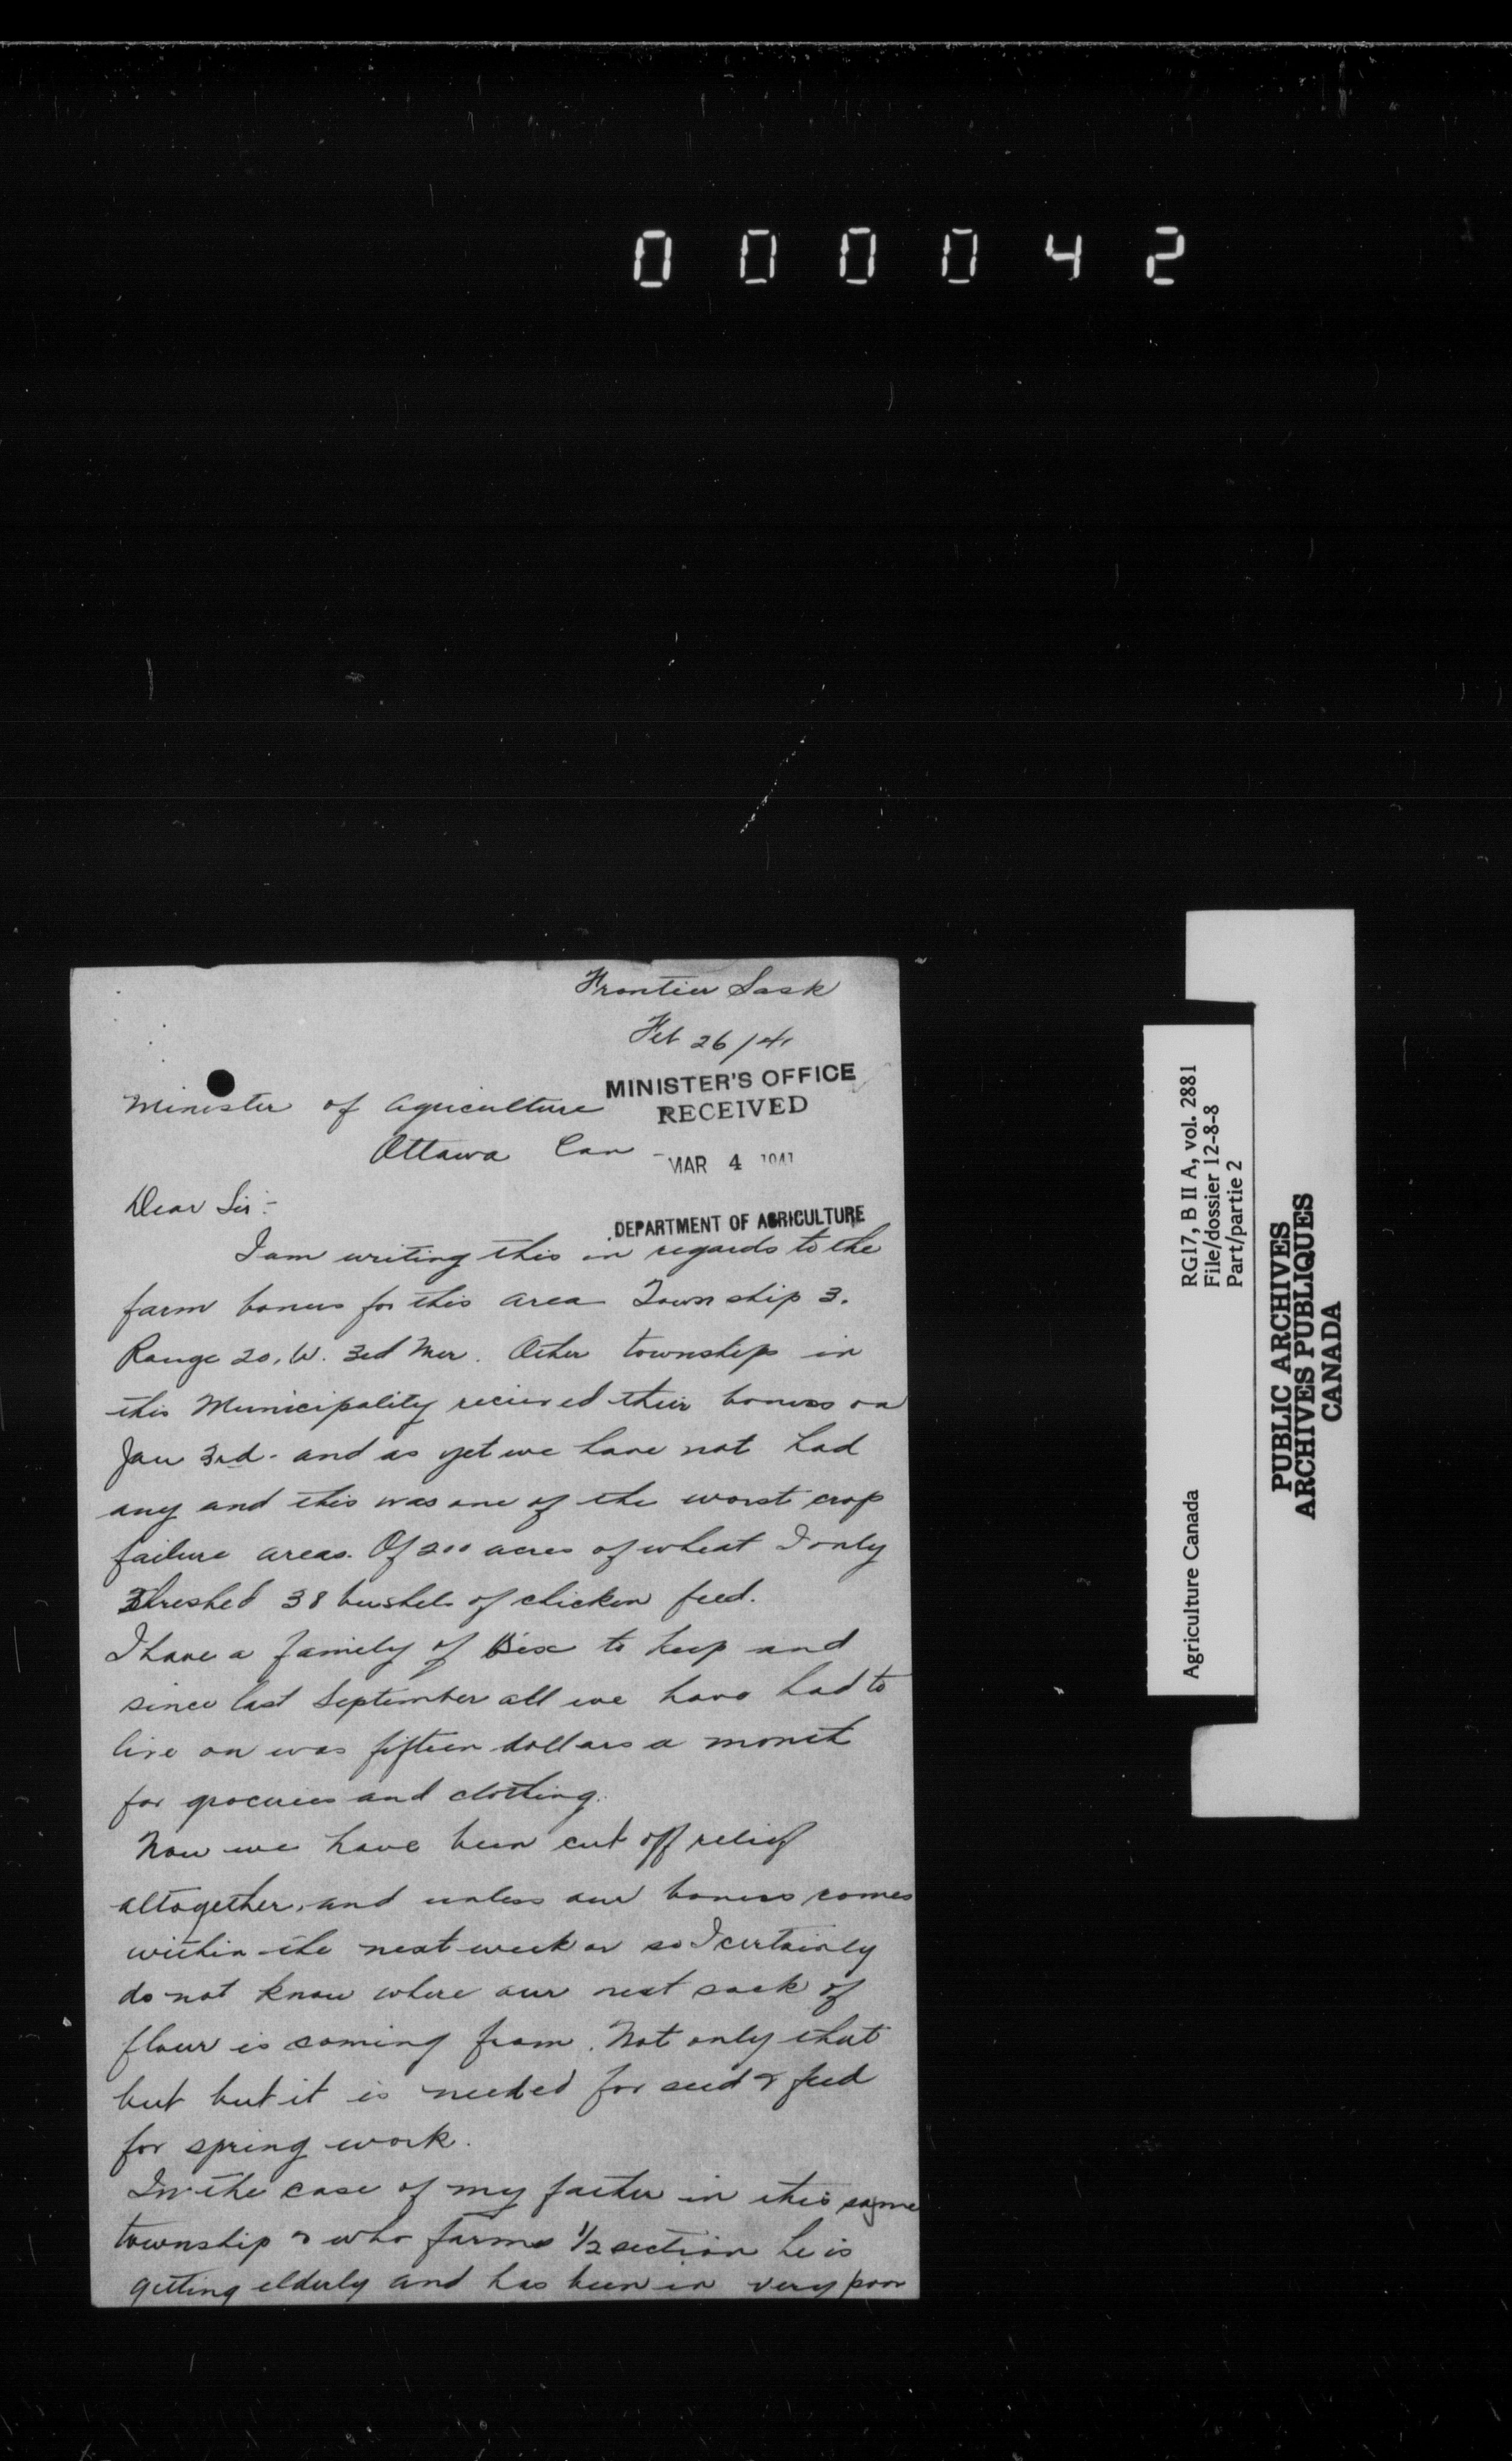 000042
Frontier Sask
Feb 26/41
MINISTER'S OFFICE
RECEIVED
MAR 4 1941
DEPARTMENT OF AGRICULTURE
Minister of Agriculture
Ottawa Can
Dear Sir:-
I am writing this in regards to the
farm bonus for this area Township 3.
Range 20, W. 3rd Mer. Other townships in
this Municipality recieved their bonus on
Jan 3rd - and as yet we have not had
any and this was one of the worst crop
failure areas. Of 200 acres of wheat I only
threshed 38 bushels of chicken feed.
I have a family of six to keep and
since last September all we have had to
live on was fifteen dollars a month
for groceries and clothing.
Now we have been cut off relief
altogether, and unless our bonus comes
within the next week or so I certainly
do not know where our next sack of
flour is coming from. Not only that
but but it is needed for seed & feed
for spring work.
In the case of my father in this same
township & who farms 1/2 section he is
getting elderly and has been in very poor
Agriculture Canada
RG17, B II A, vol. 2881
File/dossier 12-8-8
Part/partie 2
PUBLIC ARCHIVES
ARCHIVES PUBLIQUES
CANADA